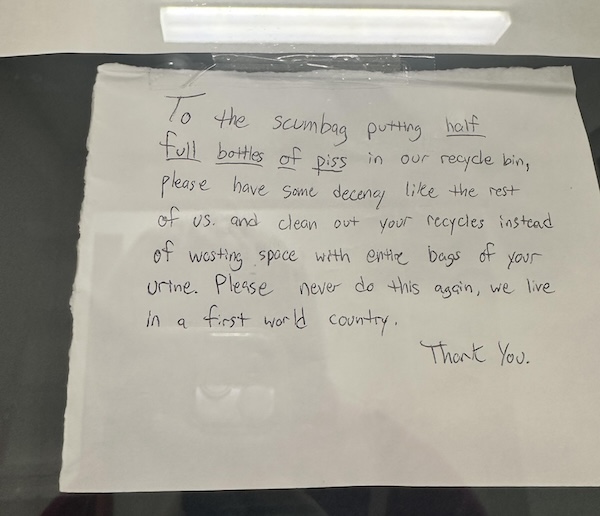 To the scumbag putting half
full bottles of piss in our recycle bin,
please have some decency like the rest
of us. and clean out your recycles instead
of wasting space with entire bags of your
urine. Please never do this again, we live
in a first world country.
Thank You.